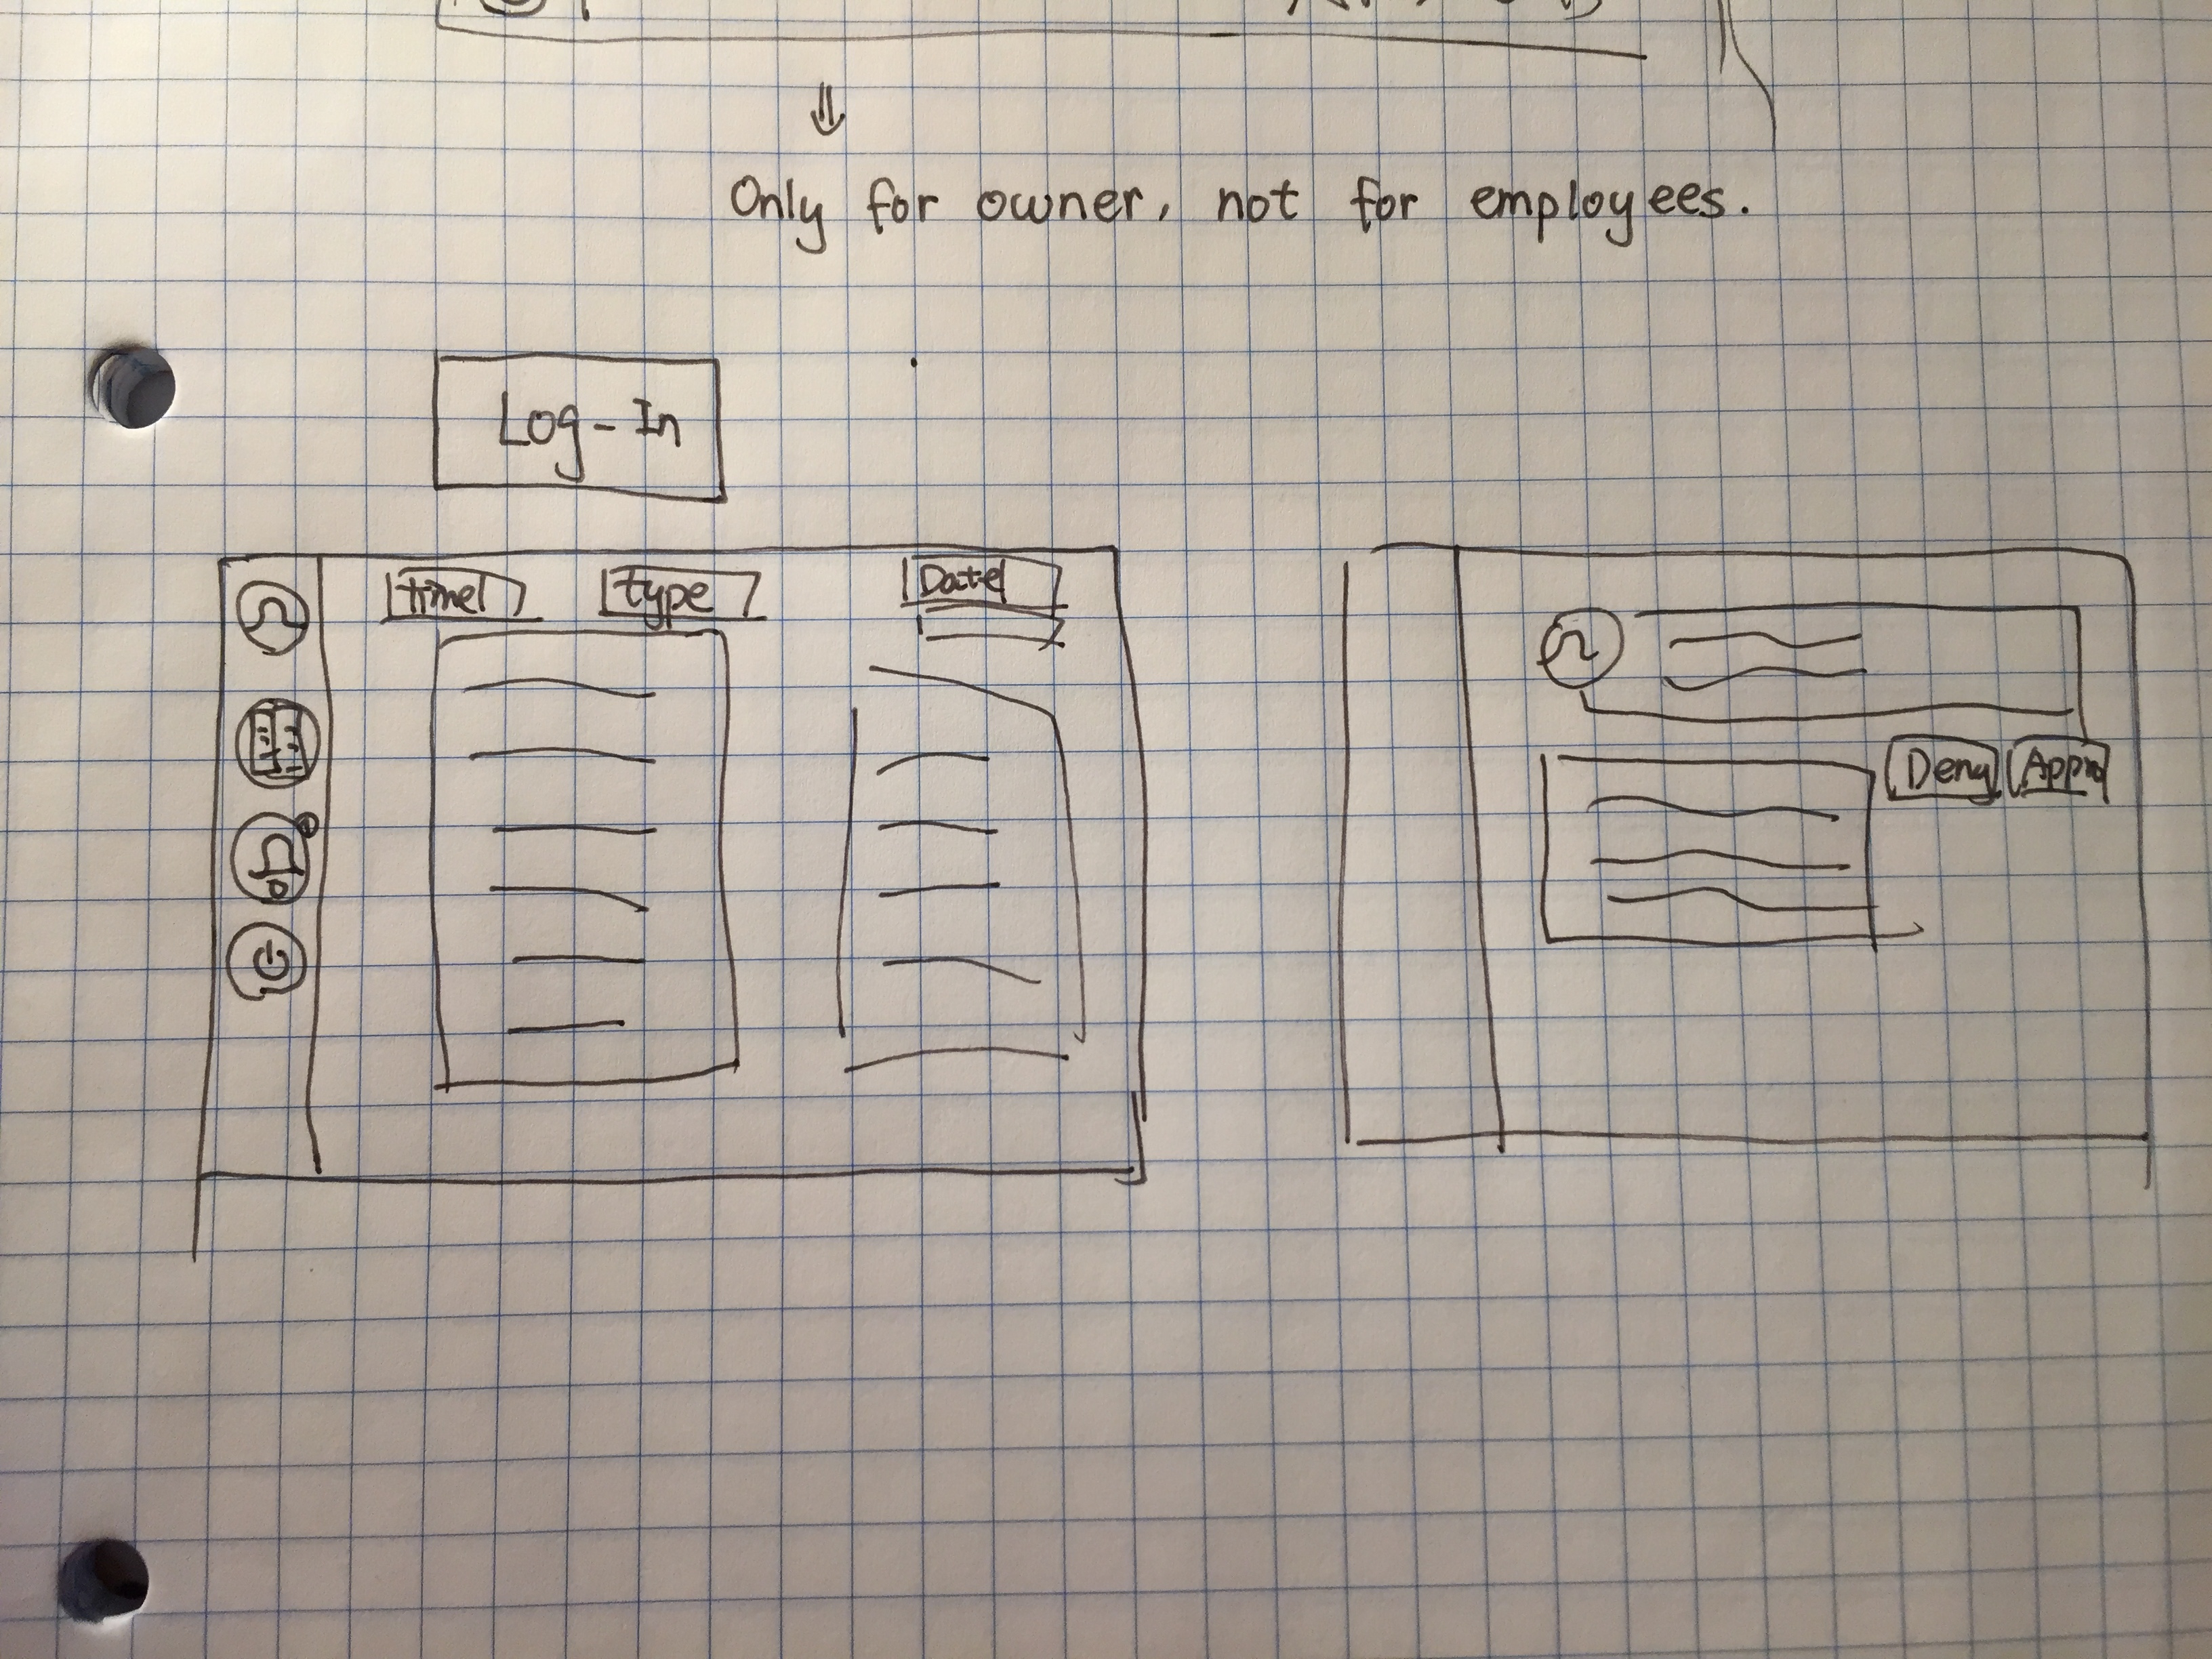 Only for owner, not for employees.
Log-In
time type Date
Deny Appro